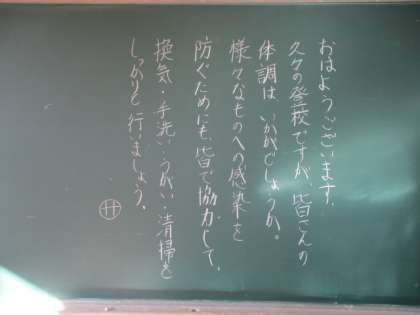 おはようございます。
久々の登校ですが、皆さんの
体調は いかがでしょうか。
様々なものへの感染を
防ぐためにも、皆で協力して、
換気・手洗い・うがい・清掃を
しっかりと行いましょう。